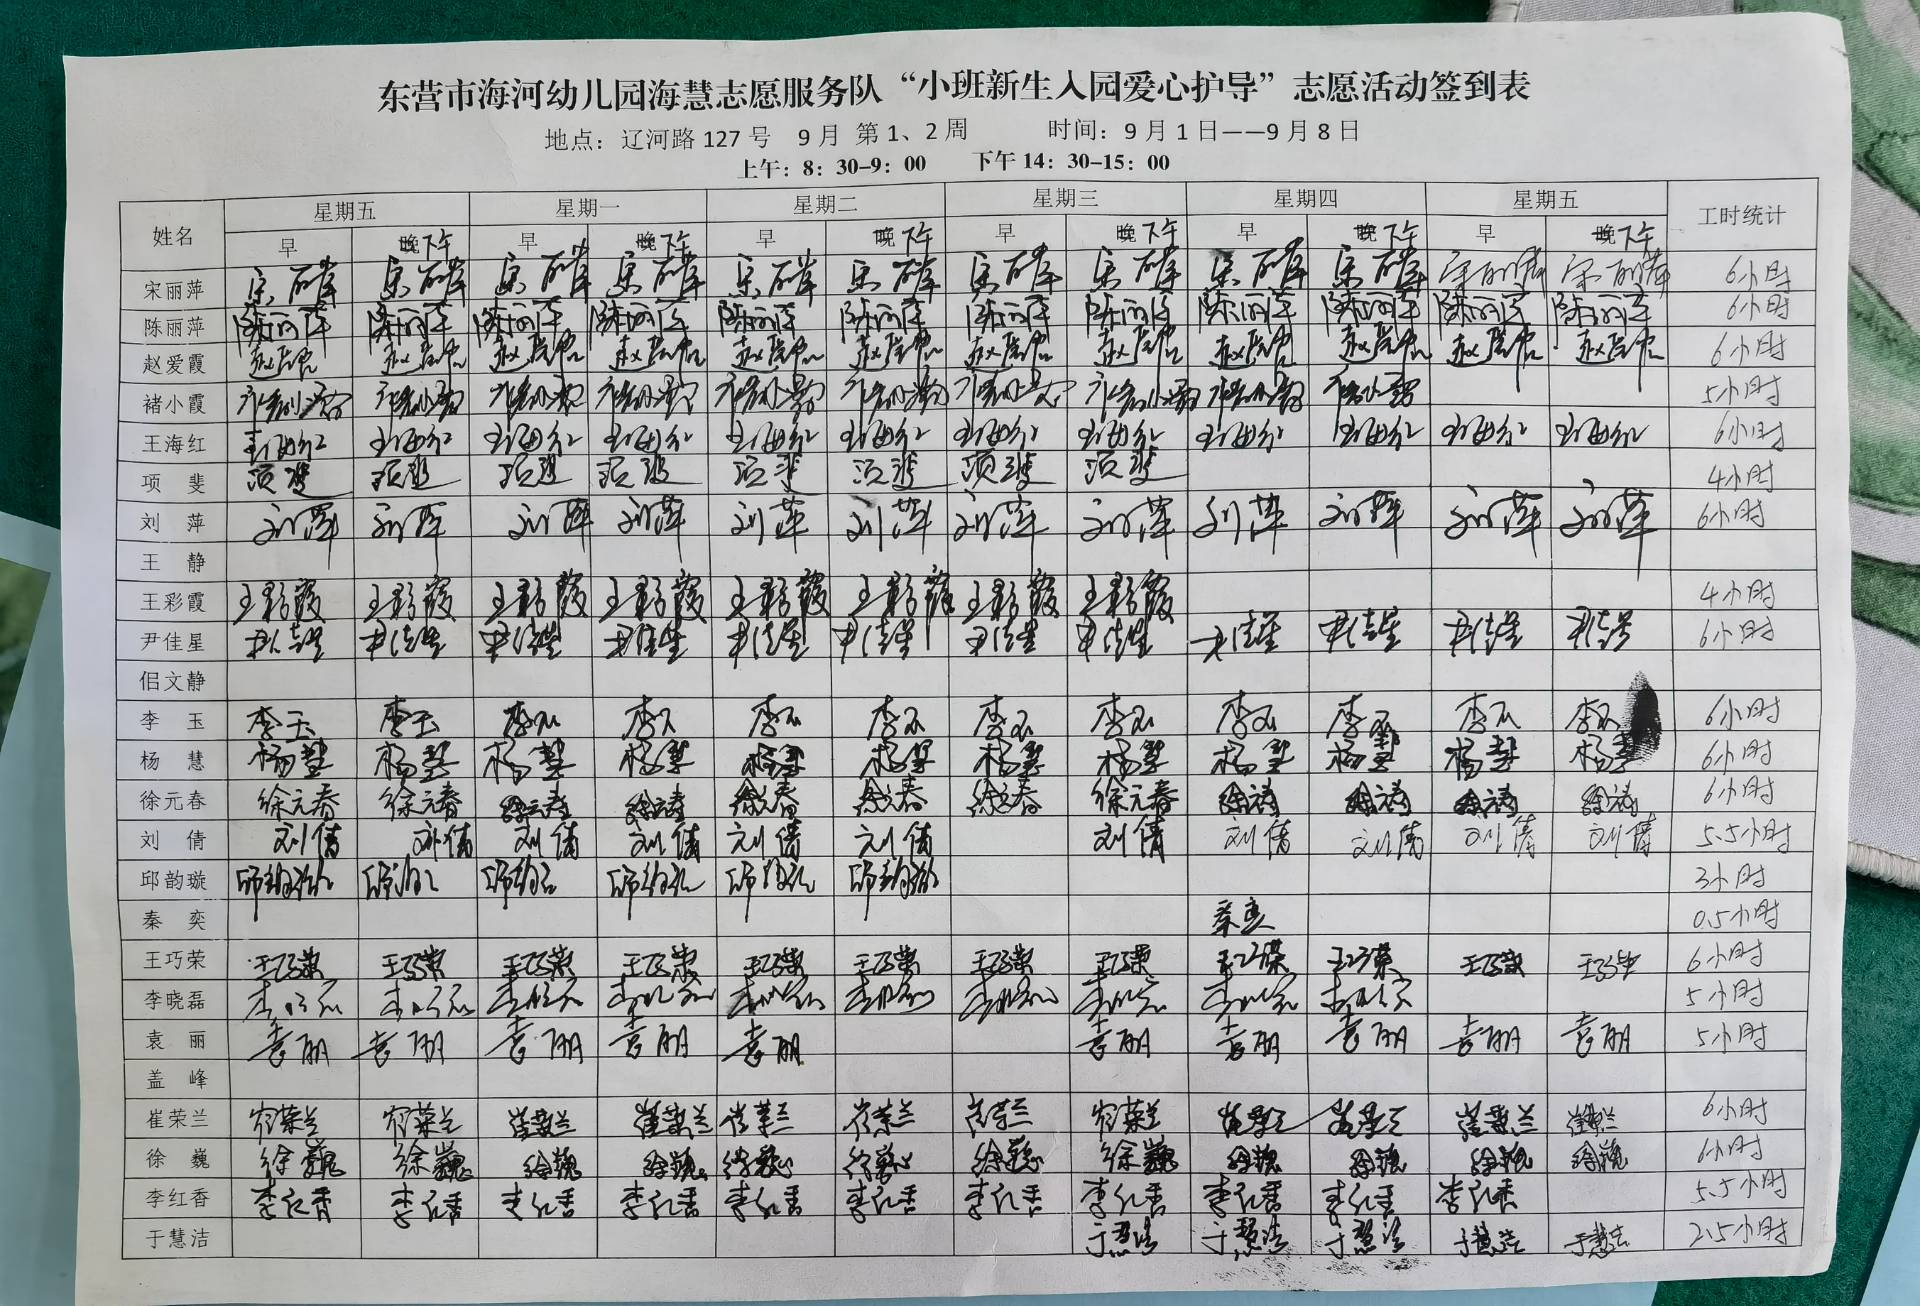 东营市海河幼儿园海慧志愿服务队“小班新生入园爱心护导”志愿活动签到表
地点：辽河路127号 9月 第1、2周 时间：9月1日——9月8日
上午：8：30-9：00 下午14：30-15：00
姓名 星期五 星期一 星期二 星期三 星期四 星期五 工时统计
早 晚下午 早 晚下午 早 晚下午 早 晚下午 早 晚下午 早 晚下午
宋丽萍 宋丽萍 宋丽萍 宋丽萍 宋丽萍 宋丽萍 宋丽萍 宋丽萍 宋丽萍 宋丽萍 宋丽萍 宋丽萍 宋丽萍 6小时
陈丽萍 陈丽萍 陈丽萍 陈丽萍 陈丽萍 陈丽萍 陈丽萍 陈丽萍 陈丽萍 陈丽萍 陈丽萍 陈丽萍 陈丽萍 6小时
赵爱霞 赵爱霞 赵爱霞 赵爱霞 赵爱霞 赵爱霞 赵爱霞 赵爱霞 赵爱霞 赵爱霞 赵爱霞 赵爱霞 赵爱霞 6小时
褚小霞 褚小霞 褚小霞 褚小霞 褚小霞 褚小霞 褚小霞 褚小霞 褚小霞 褚小霞 褚小霞 5小时
王海红 王海红 王海红 王海红 王海红 王海红 王海红 王海红 王海红 王海红 王海红 王海红 王海红 6小时
项斐 项斐 项斐 项斐 项斐 项斐 项斐 项斐 项斐 4小时
刘萍 刘萍 刘萍 刘萍 刘萍 刘萍 刘萍 刘萍 刘萍 刘萍 刘萍 刘萍 刘萍 6小时
王静
王彩霞 王彩霞 王彩霞 王彩霞 王彩霞 王彩霞 王彩霞 王彩霞 王彩霞 4小时
尹佳星 尹佳星 尹佳星 尹佳星 尹佳星 尹佳星 尹佳星 尹佳星 尹佳星 尹佳星 尹佳星 尹佳星 尹佳星 6小时
侣文静
李玉 李玉 李玉 李玉 李玉 李玉 李玉 李玉 李玉 李玉 李玉 李玉 李玉 6小时
杨慧 杨慧 杨慧 杨慧 杨慧 杨慧 杨慧 杨慧 杨慧 杨慧 杨慧 杨慧 杨慧 6小时
徐元春 徐元春 徐元春 徐元春 徐元春 徐元春 徐元春 徐元春 徐元春 徐元春 徐元春 徐元春 徐元春 6小时
刘倩 刘倩 刘倩 刘倩 刘倩 刘倩 刘倩 刘倩 刘倩 刘倩 刘倩 刘倩 5.5小时
邱韵璇 邱韵璇 邱韵璇 邱韵璇 邱韵璇 邱韵璇 邱韵璇 3小时
秦奕 秦奕 0.5小时
王巧荣 王巧荣 王巧荣 王巧荣 王巧荣 王巧荣 王巧荣 王巧荣 王巧荣 王巧荣 王巧荣 王巧荣 王巧荣 6小时
李晓磊 李晓磊 李晓磊 李晓磊 李晓磊 李晓磊 李晓磊 李晓磊 李晓磊 李晓磊 李晓磊 5小时
袁丽 袁丽 袁丽 袁丽 袁丽 袁丽 袁丽 袁丽 袁丽 袁丽 袁丽 5小时
盖峰
崔荣兰 崔荣兰 崔荣兰 崔荣兰 崔荣兰 崔荣兰 崔荣兰 崔荣兰 崔荣兰 崔荣兰 崔荣兰 崔荣兰 崔荣兰 6小时
徐巍 徐巍 徐巍 徐巍 徐巍 徐巍 徐巍 徐巍 徐巍 徐巍 徐巍 徐巍 徐巍 6小时
李红香 李红香 李红香 李红香 李红香 李红香 李红香 李红香 李红香 李红香 李红香 李红香 5.5小时
于慧洁 于慧洁 于慧洁 于慧洁 于慧洁 于慧洁 2.5小时